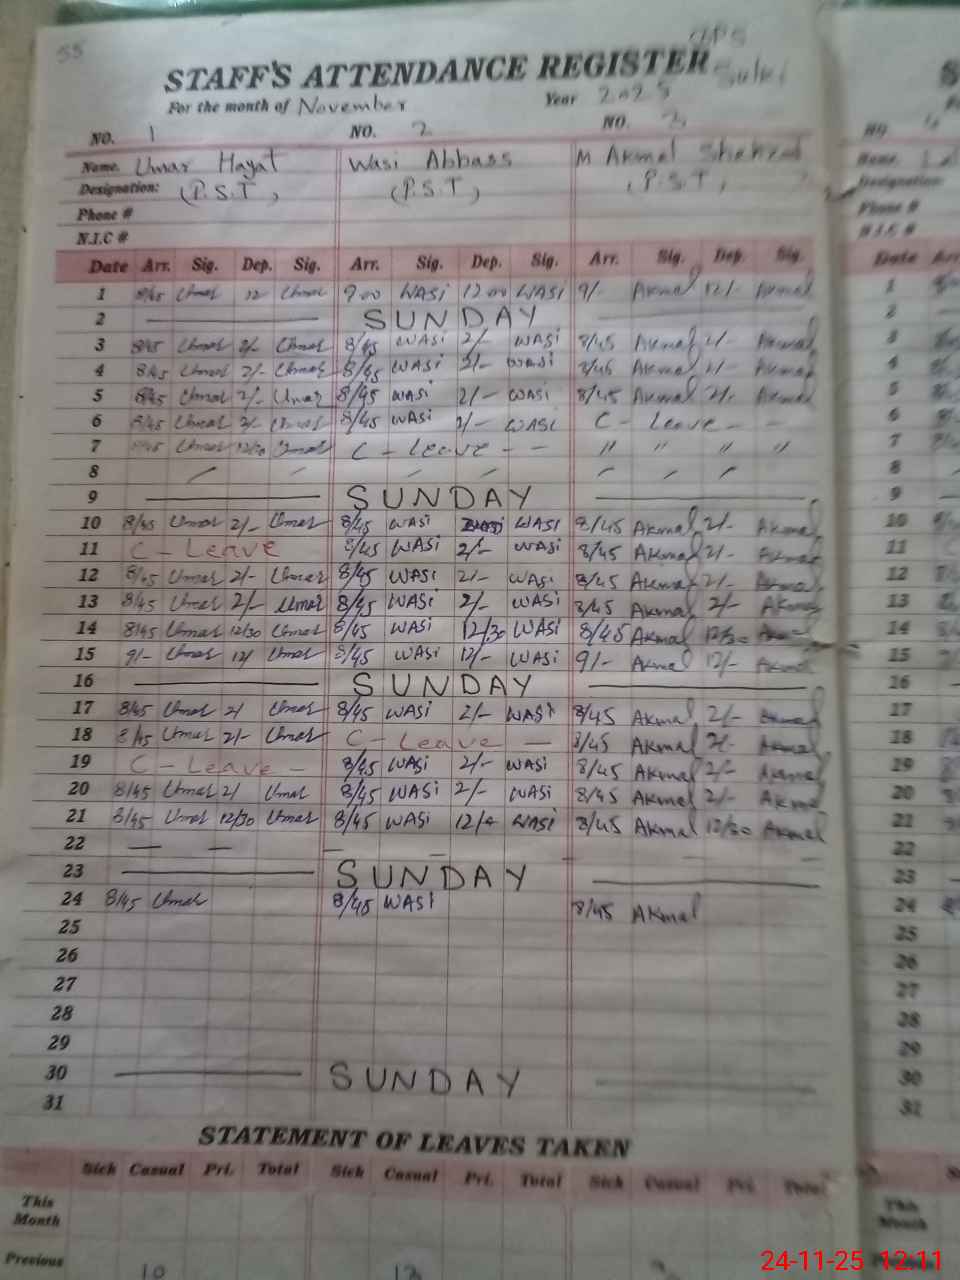 55
GPS
STAFF'S ATTENDANCE REGISTER
For the month of November Year 2025
NO. 1 NO. 2 NO. 3
Name. Umar Hayat Wasi Abbass M Akmal Shehzad
Designation: (P.S.T) (P.S.T) (P.S.T)
Phone #
N.I.C #
Date Arr. Sig. Dep. Sig. Arr. Sig. Dep. Sig. Arr. Sig. Dep. Sig.
1 8/45 Umar 12 Umar 9 00 WASi 12 00 WASi 9/- Akmal 12/- Akmal
2 SUNDAY
3 8/45 Umar 2/- Umar 8/45 WASi 2/- WASi 8/45 Akmal 2/- Akmal
4 8/45 Umar 2/- Umar 8/45 WASi 2/- WASi 8/45 Akmal 2/- Akmal
5 8/45 Umar 2/- Umar 8/45 WASi 2/- WASi 8/45 Akmal 2/- Akmal
6 8/45 Umar 2/- Umar 8/45 WASi 2/- WASi C - Leave - -
7 8/45 Umar 12/30 Umar C - Leave - - " " " "
8
9 SUNDAY
10 8/45 Umar 2/- Umar 8/45 WASi WASi 8/45 Akmal 2/- Akmal
11 C - Leave 8/45 WASi 2/- WASi 8/45 Akmal 2/- Akmal
12 8/45 Umar 2/- Umar 8/45 WASi 2/- WASi 8/45 Akmal 2/- Akmal
13 8/45 Umar 2/- Umar 8/45 WASi 2/- WASi 8/45 Akmal 2/- Akmal
14 8/45 Umar 12/30 Umar 8/45 WASi 12/30 WASi 8/45 Akmal 12/30 Akmal
15 9/- Umar 12/ Umar 8/45 WASi 12/- WASi 9/- Akmal 12/- Akmal
16 SUNDAY
17 8/45 Umar 2/ Umar 8/45 WASi 2/- WASi 8/45 Akmal 2/- Akmal
18 8/45 Umar 2/- Umar C - Leave - 8/45 Akmal 2/- Akmal
19 C - Leave - 8/45 WASi 2/- WASi 8/45 Akmal 2/- Akmal
20 8/45 Umar 2/ Umar 8/45 WASi 2/- WASi 8/45 Akmal 2/- Akmal
21 8/45 Umar 12/30 Umar 8/45 WASi WASi 8/45 Akmal 12/30 Akmal
22 — — — — — — —
23 SUNDAY
24 8/45 Umar 8/45 WASi 8/45 Akmal
25
26
27
28
29
30 SUNDAY
31
STATEMENT OF LEAVES TAKEN
Sick Casual Pri. Total Sick Casual Pri. Total Sick Casual Pri. Total
This Month
Previous 10
24-11-25 12:11